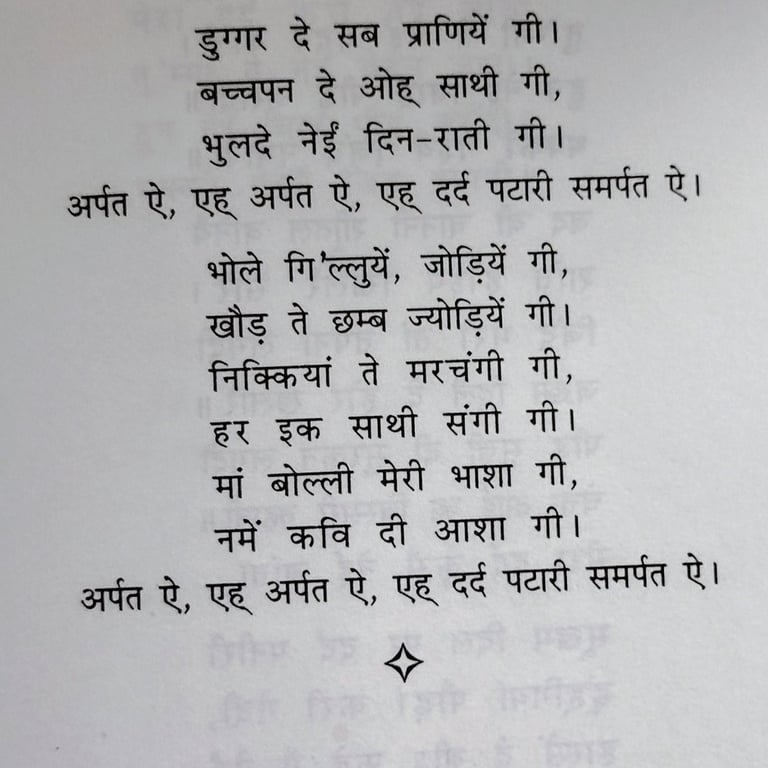 डुग्गर दे सब प्राणियें गी।
बच्चपन दे ओह् साथी गी,
भुलदे नेईं दिन-राती गी।
अर्पत ऐ, एह् अर्पत ऐ, एह् दर्द पटारी समर्पत ऐ।
भोले गि'ल्लुयें, जोड़ियें गी,
खौड़ ते छम्ब ज्योड़ियें गी।
निक्कियां ते मरचंगी गी,
हर इक साथी संगी गी।
मां बोल्ली मेरी भाशा गी,
नमें कवि दी आशा गी।
अर्पत ऐ, एह् अर्पत ऐ, एह् दर्द पटारी समर्पत ऐ।